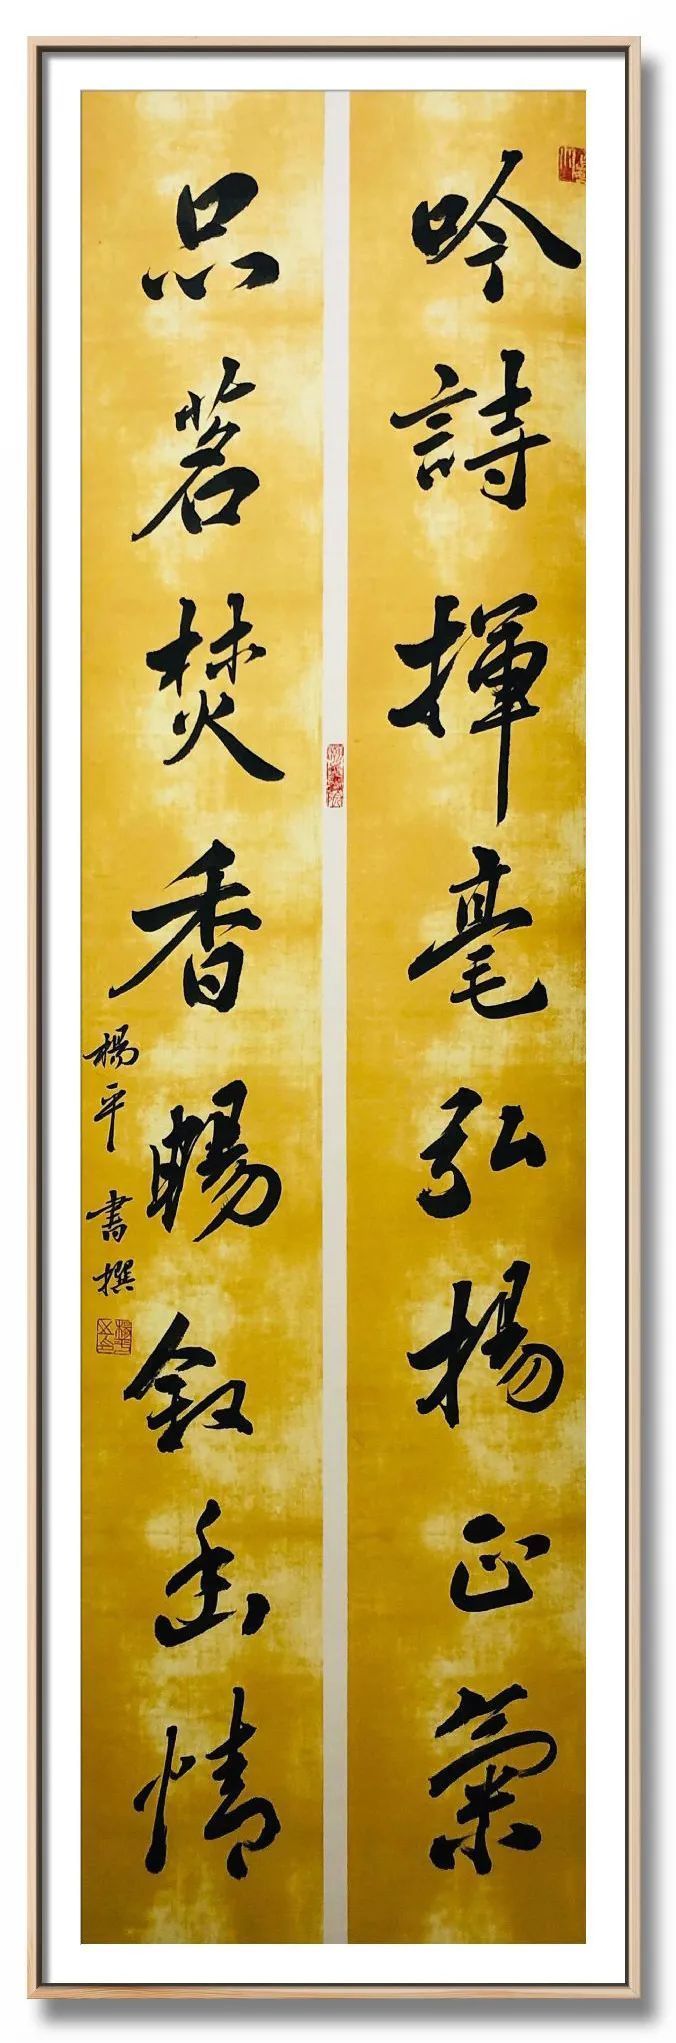 吟詩揮毫弘揚正氣
品茗焚香暢敘幽情
楊平書撰